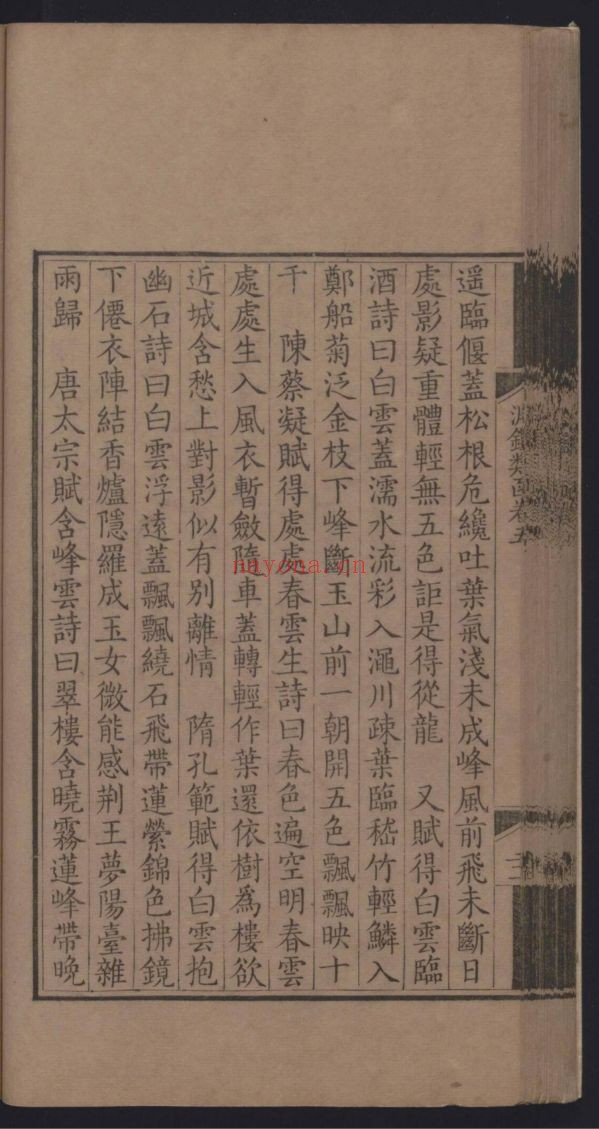 遥臨偃蓋松根危纔吐葉氣淺未成峰風前飛未斷日
處影疑重體輕無五色詎是得從龍　又賦得白雲臨
酒詩曰白雲蓋濡水流彩入澠川疎葉臨嵇竹輕鱗入
鄭船菊泛金枝下峰斷玉山前一朝開五色飄飄映十
千　陳蔡凝賦得處處春雲生詩曰春色遍空明春雲
處處生入風衣暫斂隨車蓋轉輕作葉還依樹爲樓欲
近城含愁上對影似有别離情　隋孔範賦得白雲抱
幽石詩曰白雲浮遠蓋飄飄繞石飛帶蓮縈錦色拂鏡
下僊衣陣結香爐隱羅成玉女微能感荆王夢陽臺雜
雨歸　唐太宗賦含峰雲詩曰翠樓含曉霧蓮峰帶晚
淵鑑類函卷五
nayona.cn